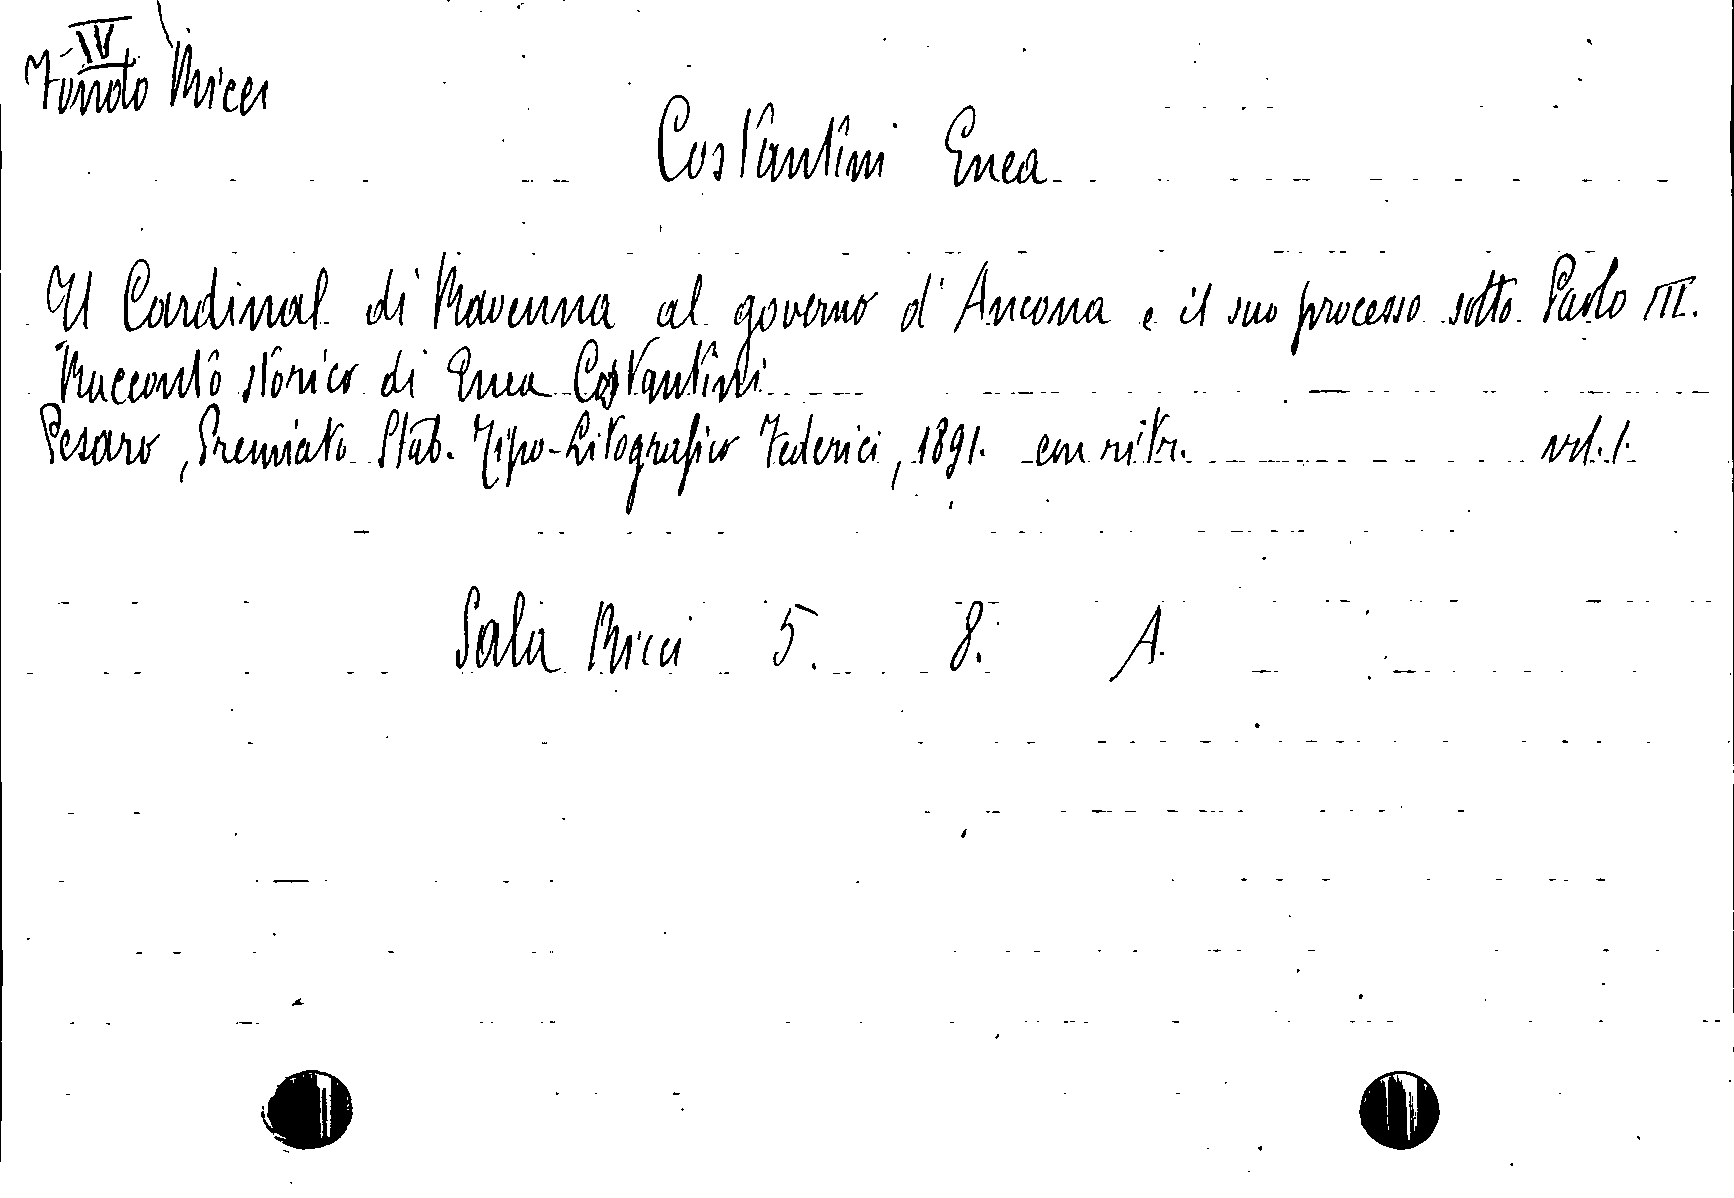 IV
Fondo Ricci
Costantini Enea
Il Cardinal di Ravenna al governo d'Ancona e il suo processo sotto Paolo III.
Racconto storico di Enea Costantini
Pesaro, Premiato Stab. Tipo-Litografico Federici, 1891. con ritr. vol. 1.
Sala Ricci 5. 8. A.